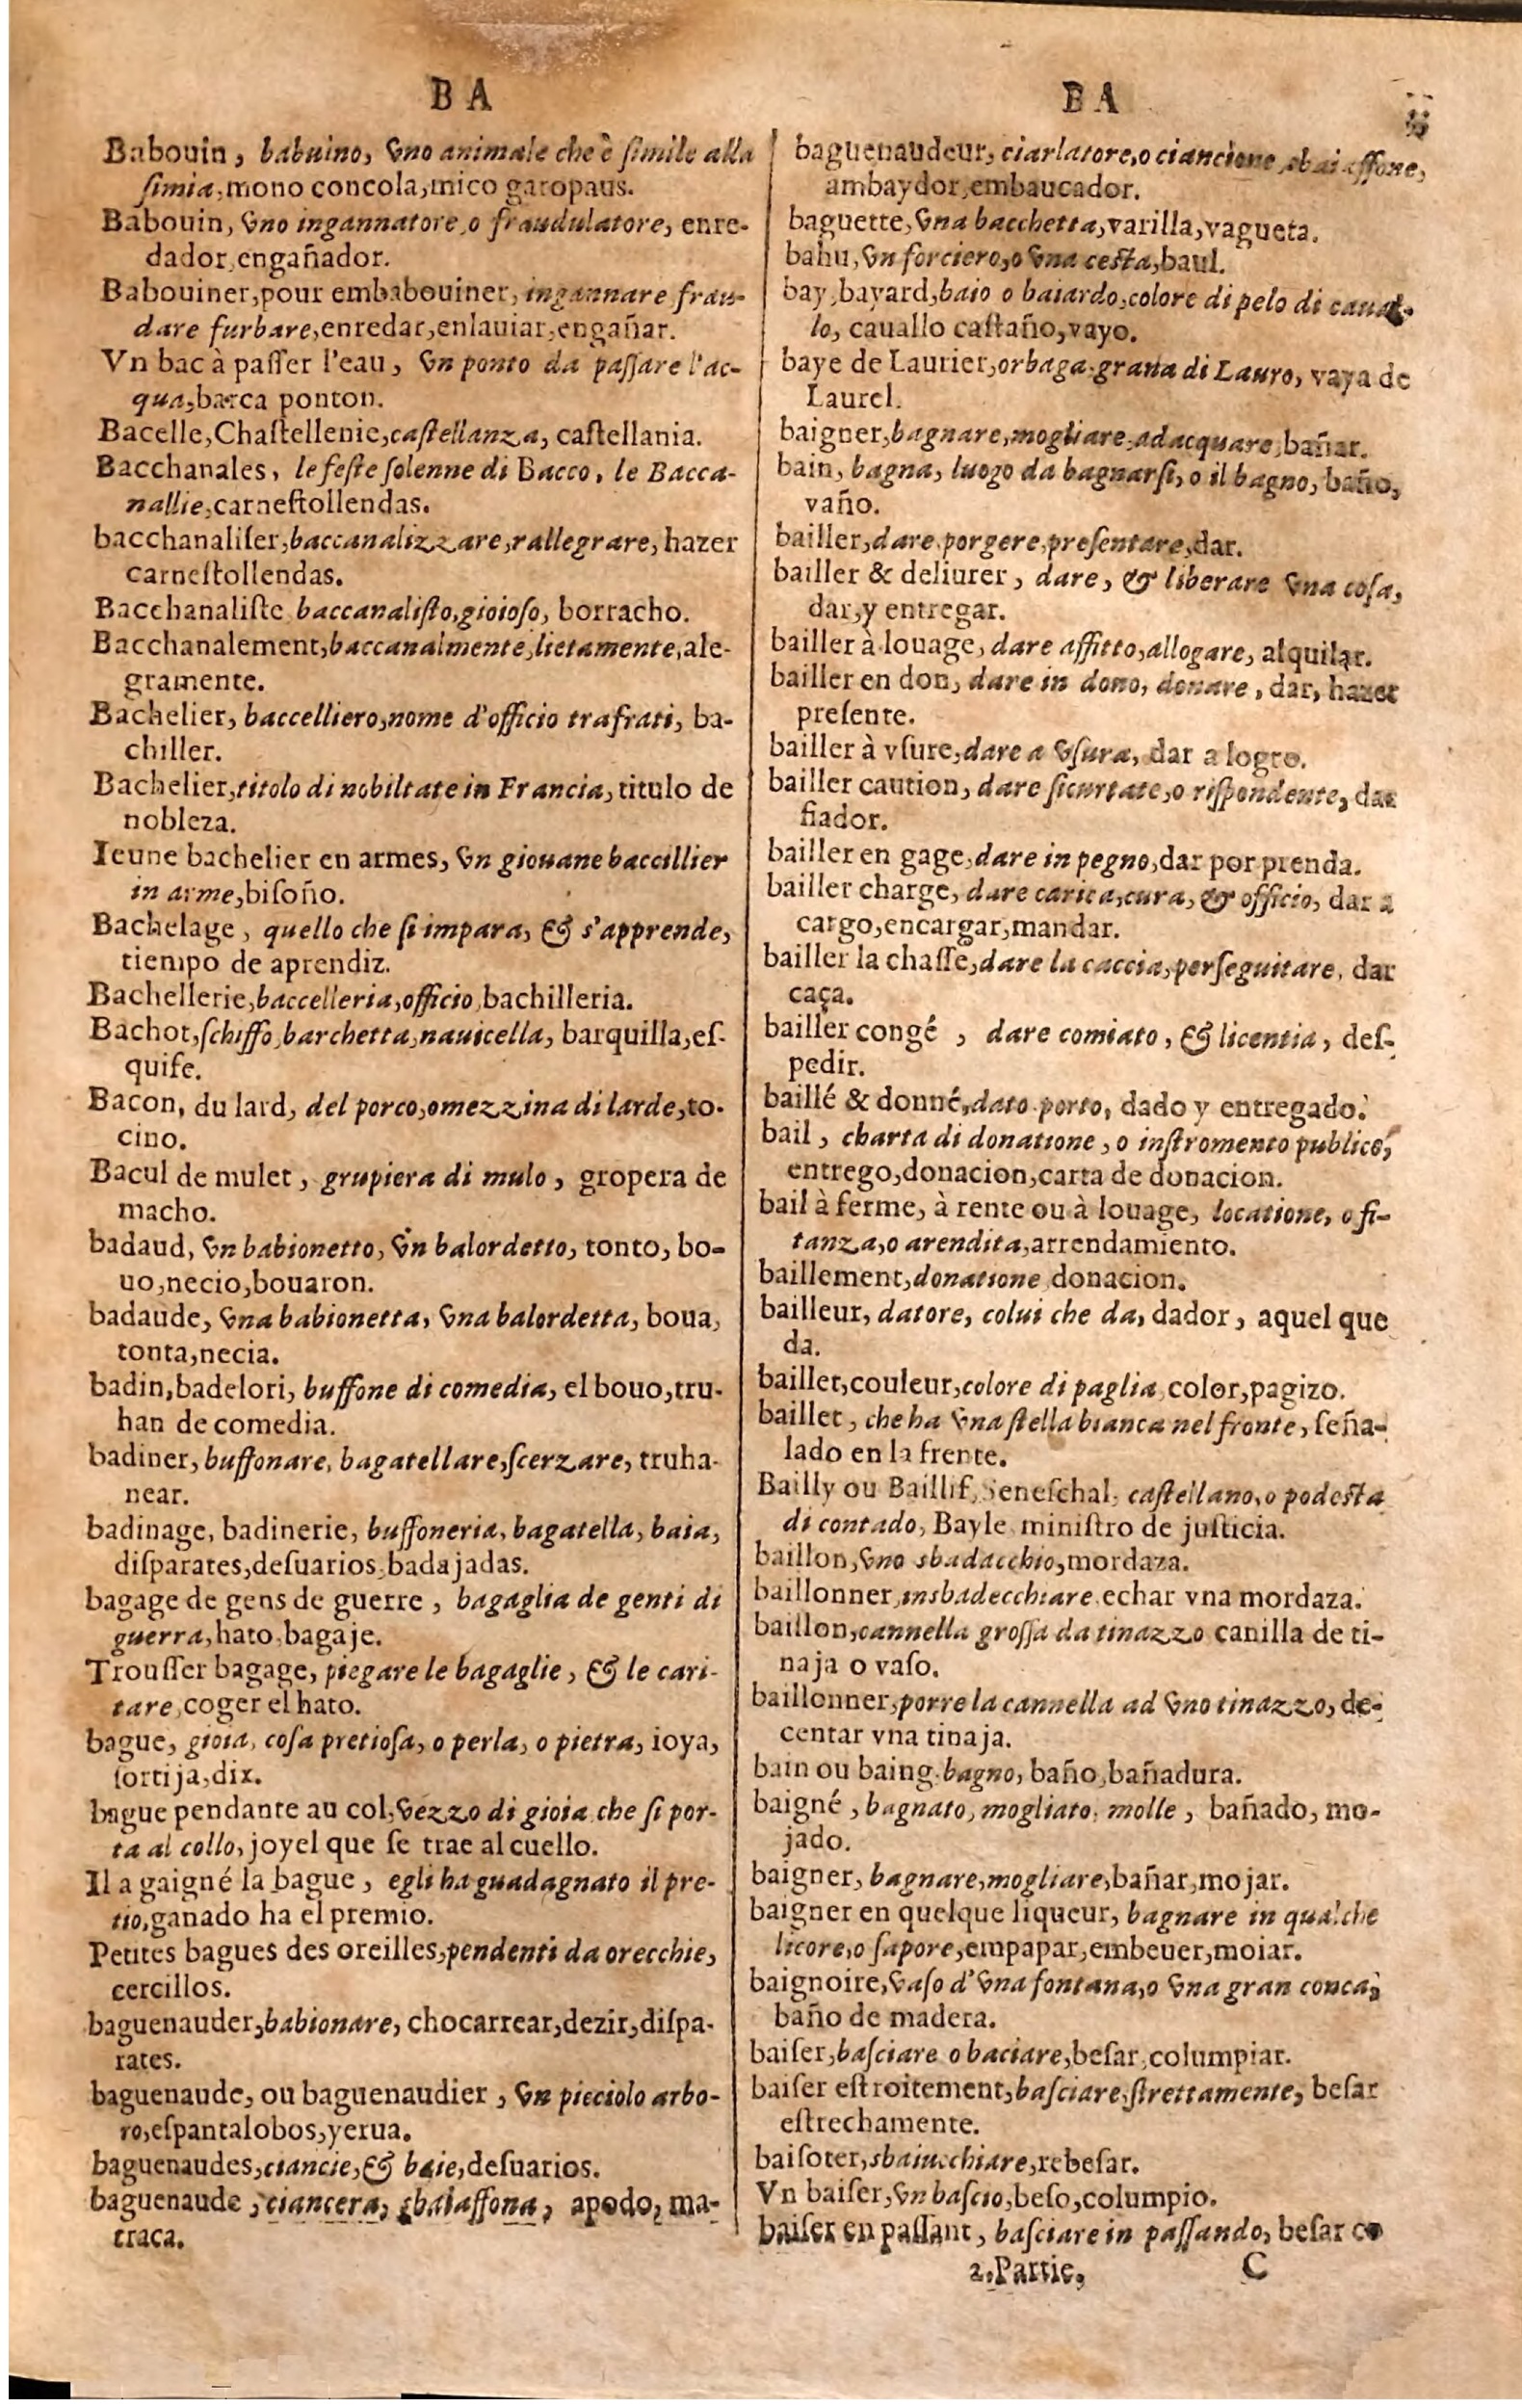 B A
Babouin, babuino, vno animale che è ſimile alla
ſimia, mono concola, mico garopaus.
Babouin, vno ingannatore, o fraudulatore, enre-
dador, engañador.
Babouiner, pour embabouiner, ingannare frau-
dare furbare, enredar, enlauiar, engañar.
Vn bac à paſſer l'eau, vn ponto da paſſare l'ac-
qua, barca ponton.
Bacelle, Chaſtellenie, caſtellanza, caſtellania.
Bacchanales, le feſte ſolenne di Bacco, le Bacca-
nallie, carneſtollendas.
bacchanaliſer, baccanalizzare, rallegrare, hazer
carneſtollendas.
Bacchanaliſte baccanaliſto, gioioſo, borracho.
Bacchanalement, baccanalmente, lietamente, ale-
gramente.
Bachelier, baccelliero, nome d'officio trafrati, ba-
chiller.
Bachelier, titolo di nobiltate in Francia, titulo de
nobleza.
Ieune bachelier en armes, vn giouane baccillier
in arme, biſoño.
Bachelage, quello che ſi impara, & s'apprende,
tiempo de aprendiz.
Bachellerie, baccelleria, officio, bachilleria.
Bachot, ſchiffo, barchetta, nauicella, barquilla, eſ-
quife.
Bacon, du lard, del porco, o mezzina di larde, to-
cino.
Bacul de mulet, grupiera di mulo, gropera de
macho.
badaud, vn babionetto, vn balordetto, tonto, bo-
uo, necio, bouaron.
badaude, vna babionetta, vna balordetta, boua,
tonta, necia.
badin, badelori, buffone di comedia, el bouo, tru-
han de comedia.
badiner, buffonare, bagatellare, ſcerzare, truha-
near.
badinage, badinerie, buffoneria, bagatella, baia,
diſparates, deſuarios, badajadas.
bagage de gens de guerre, bagaglia de genti di
guerra, hato, bagaje.
Trouſſer bagage, piegare le bagaglie, & le cari-
tare, coger el hato.
bague, gioia, coſa pretioſa, o perla, o pietra, ioya,
ſortija, dix.
bague pendante au col, vezzo di gioia che ſi por-
ta al collo, joyel que ſe trae al cuello.
Il a gaigné la bague, egli ha guadagnato il pre-
tio, ganado ha el premio.
Petites bagues des oreilles, pendenti da orecchie,
cercillos.
baguenauder, babionare, chocarrear, dezir, diſpa-
rates.
baguenaude, ou baguenaudier, vn picciolo arbo-
ro, eſpantalobos, yerua.
baguenaudes, ciancie, & baie, deſuarios.
baguenaude, ciancera, sbaiaffona, apodo, ma-
traca.
B A
baguenaudeur, ciarlatore, o ciancione, sbaiaffone,
ambaydor, embaucador.
baguette, vna bacchetta, varilla, vagueta.
bahu, vn forciero, o vna ceſta, baul.
bay, bayard, baio o baiardo, colore di pelo di caual-
lo, cauallo caſtaño, vayo.
baye de Laurier, orbaga, grana di Lauro, vaya de
Laurel.
baigner, bagnare, mogliare, adacquare, bañar.
bain, bagna, luogo da bagnarſi, o il bagno, baño,
vaño.
bailler, dare, porgere, preſentare, dar.
bailler & deliurer, dare, & liberare vna coſa,
dar, y entregar.
bailler à louage, dare affitto, allogare, alquilar.
bailler en don, dare in dono, donare, dar, hazer
preſente.
bailler à vſure, dare a vſura, dar a logro.
bailler caution, dare ſicurtate, o riſpondente, dar
fiador.
bailler en gage, dare in pegno, dar por prenda.
bailler charge, dare carica, cura, & officio, dar a
cargo, encargar, mandar.
bailler la chaſſe, dare la caccia, perſeguitare, dar
caça.
bailler congé, dare comiato, & licentia, deſ-
pedir.
baillé & donné, dato porto, dado y entregado.
bail, charta di donatione, o inſtromento publico,
entrego, donacion, carta de donacion.
bail à ferme, à rente ou à louage, locatione, o fi-
tanza, o arendita, arrendamiento.
baillement, donatione, donacion.
bailleur, datore, colui che da, dador, aquel que
da.
baillet, couleur, colore di paglia, color, pagizo.
baillet, che ha vna ſtella bianca nel fronte, ſeña-
lado en la frente.
Bailly ou Baillif, Seneſchal, caſtellano, o podeſta
di contado, Bayle miniſtro de juſticia.
baillon, vno sbadacchio, mordaza.
baillonner, insbadecchiare, echar vna mordaza.
baillon, cannella groſſa da tinazzo canilla de ti-
naja o vaſo.
baillonner, porre la cannella ad vno tinazzo, de-
centar vna tinaja.
bain ou baing, bagno, baño, bañadura.
baigné, bagnato, mogliato, molle, bañado, mo-
jado.
baigner, bagnare, mogliare, bañar, mojar.
baigner en quelque liqueur, bagnare in qualche
licore, o ſapore, empapar, embeuer, moiar.
baignoire, vaſo d'vna fontana, o vna gran conca,
baño de madera.
baiſer, baſciare o baciare, beſar, columpiar.
baiſer eſtroitement, baſciare, ſtrettamente, beſar
eſtrechamente.
baiſoter, sbaiucchiare, rebeſar.
Vn baiſer, vn baſcio, beſo, columpio.
baiſer en paſſant, baſciare in paſſando, beſar co
2. Partie. C